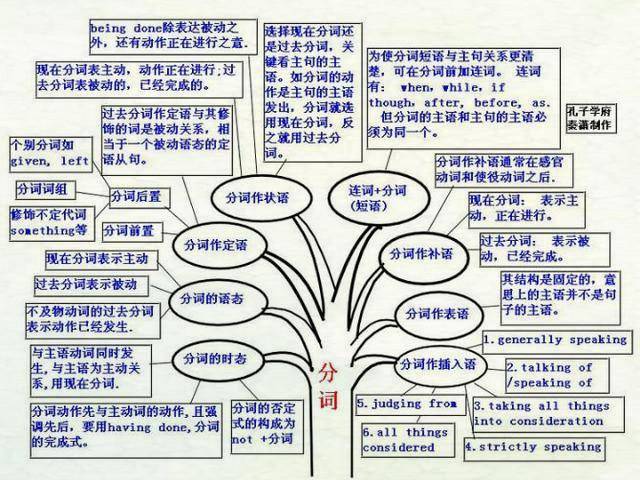 being done除表达被动之
外，还有动作正在进行之意.
现在分词表主动，动作正在进行;过
去分词表被动的，已经完成的。
过去分词作定语与其修
饰的词是被动关系，相
当于一个被动语态的定
语从句。
选择现在分词还
是过去分词，关
键看主句的主
语。如分词的动
作是主句的主语
发出，分词就选
用现在分词，反
之就用过去分
词。
为使分词短语与主句关系更清
楚，可在分词前加连词。 连词
有： when, while, if
though, after, before, as.
但分词的主语和主句的主语必
须为同一个。
孔子学府
秦潇制作
个别分词如
given, left
分词词组
修饰不定代词
something等
分词后置
分词前置
分词作定语
分词作状语
连词+分词
(短语)
分词作补语
分词作补语通常在感官
动词和使役动词之后.
现在分词： 表示主
动，正在进行。
过去分词： 表示被
动，已经完成。
现在分词表示主动
过去分词表示被动
不及物动词的过去分词
表示动作已经发生.
分词的语态
分词作表语
其结构是固定的，意
思上的主语并不是句
子的主语。
与主语动词同时发
生，与主语为主动关
系，用现在分词.
分词动作先与主动词的动作，且强
调先后，要用having done,分词
的完成式。
分词的否定
式的构成为
not +分词
分词的时态
分词
分词作插入语
1.generally speaking
2.talking of
/speaking of
3.taking all things
into consideration
4.strictly speaking
5.judging from
6.all things
considered